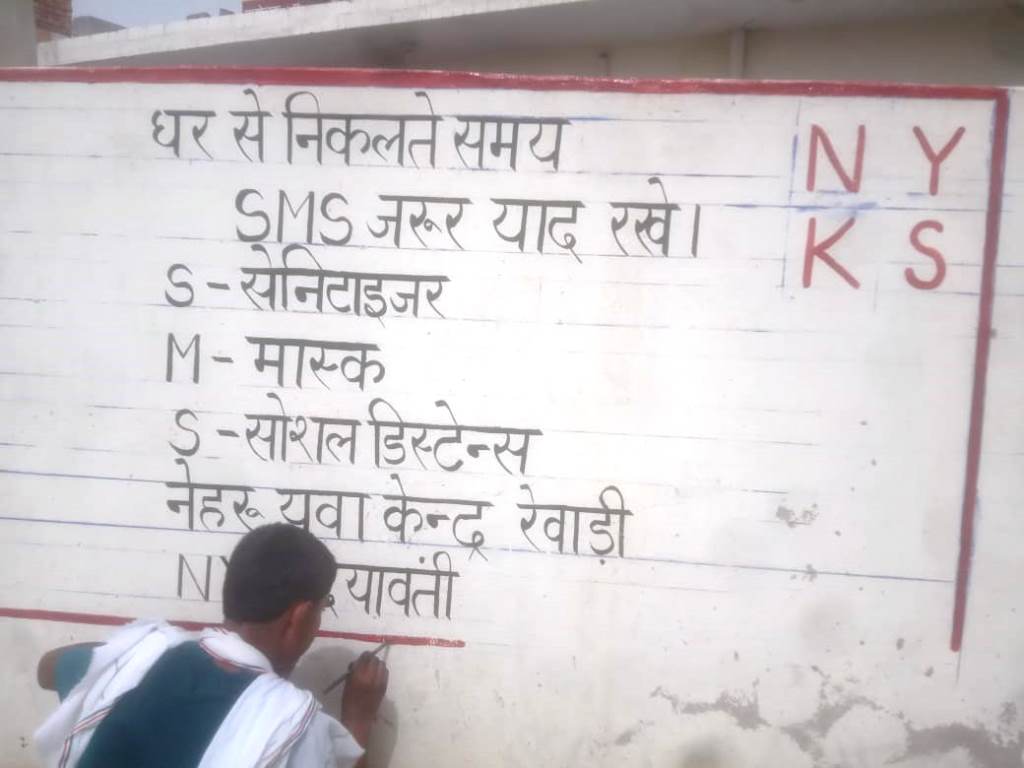 घर से निकलते समय
SMS जरूर याद रखे।
S - सेनिटाइजर
M - मास्क
S - सोशल डिस्टेन्स
नेहरू युवा केन्द्र रेवाड़ी
यावंती
N Y
K S